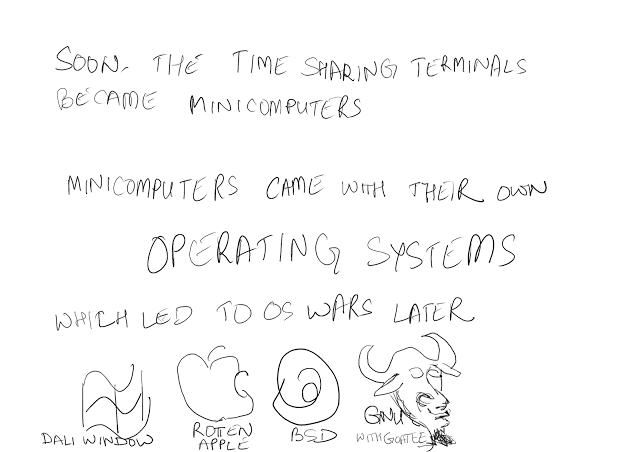 SOON, THE TIME SHARING TERMINALS
BECAME MINICOMPUTERS
MINICOMPUTERS CAME WITH THEIR OWN
OPERATING SYSTEMS
WHICH LED TO OS WARS LATER
DALI WINDOW
ROTTEN
APPLE
BSD
GNU
WITH GOATEE